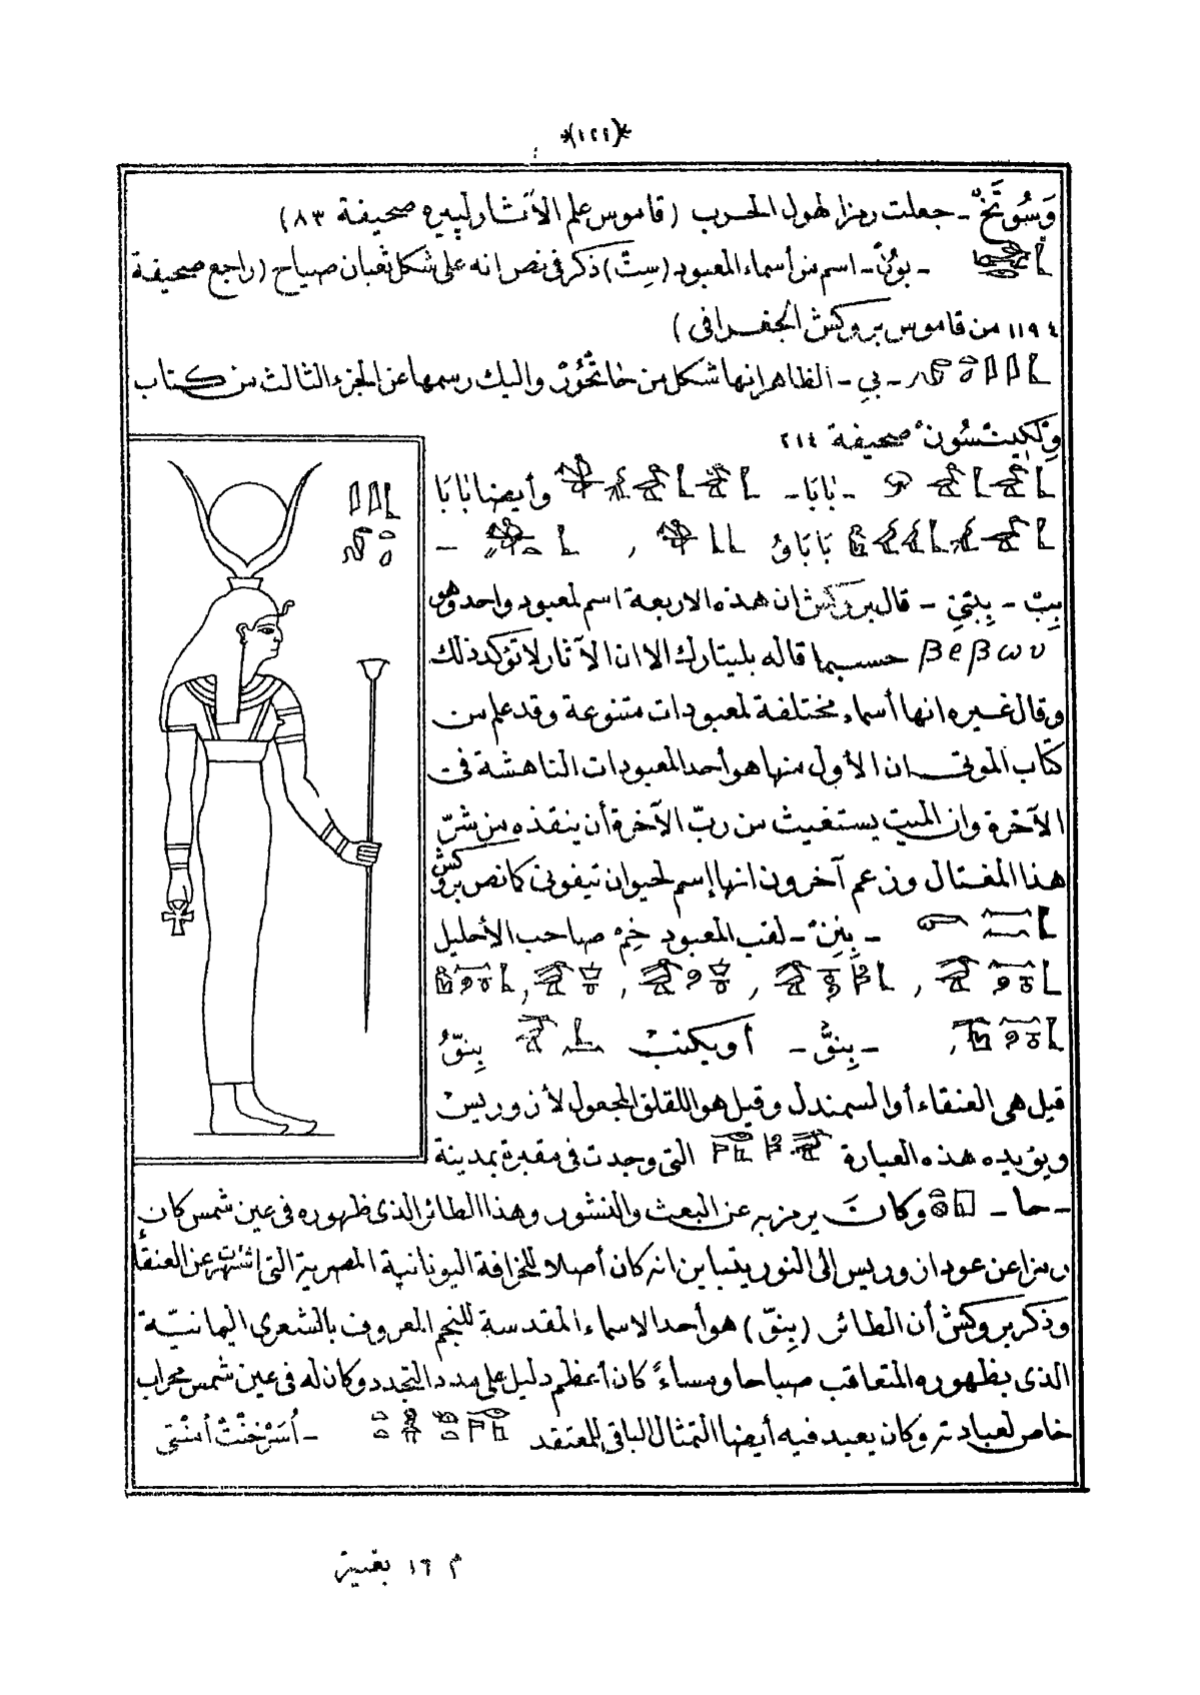 *(١٢٢)*
وَسُوتَخْ - جعلت رمزا لهول الحرب (قاموس علم الآثار لپييره صحيفة ٨٣)
- بُونْ - اسم من أسماء المعبود (سِتْ) ذكر فى نص انه على شكل ثعبان صياح (راجع صحيفة
١١٩٤ من قاموس بروكش الجغرافى)
- بِي - الظاهر انها شكل من حَاتْحُورْ واليك رسمها عن الجزء الثالث من كتاب
وِلْكِينْسُونْ صحيفة ٢١٤
- بَابَا - وأيضا بَابَا
بَابَاىُ , -
بِبْ - بِبْتِى - قال بروكش ان هذه الاربعة اسم لمعبود واحد وهو
βεβων حسبما قاله بليتارك الا ان الآثار لا تؤكد ذلك
وقال غيره انها أسماء مختلفة لمعبودات متنوعة وقد علم من
كتاب الموتى ان الأول منها هو أحد المعبودات الناهشة فى
الآخرة وان الميت يستغيث من ربّ الآخرة أن ينقذه من شرّ
هذا المغتال وزعم آخرون انها إسم لحيوان تيفونى كما نص بروكش
- بِنِنْ - لقب المعبود خِمْ صاحب الأحليل
, , , ,
, - بِنُّو - أو يكتب بِنّوُ
قيل هى العنقاء أو السمندل وقيل هو اللقلق المجعول لأوزوريس
ويؤيده هذه العبارة التى وجدت فى مقبرة بمدينة
- حا - وكانَ يرمز به عن البعث والنشور وهذا الطائر الذى ظهوره فى عين شمس كان
رمزا عن عود ازوريس الى النور يتباين انه كان أصلا للخرافة اليونانية المصرية التى اشتهرت عن العنقا
وذكر بروكش أن الطائر (بنو) هو أحد الاسماء المقدسة للنجم المعروف بالشعرى اليمانيّة
الذى بظهوره المتعاقب صباحا ومساءً كان أعظم دليل على مدد التجدد وكان له فى عين شمس محراب
خاص لعبادته وكان يعبد فيه أيضا التمثال الباقى للمعتقد - أُسَرْخَنْتْ أمنتى
م ١٦ بغيه